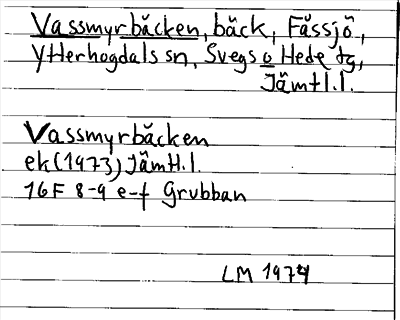 Vassmyrbäcken, bäck, Fåssjö,
Ytterhogdals sn, Svegs o Hede tg,
Jämtl.l.
Vassmyrbäcken
ek(1973)Jämtl.l.
16F 8-9 e-f Grubban
LM 1974